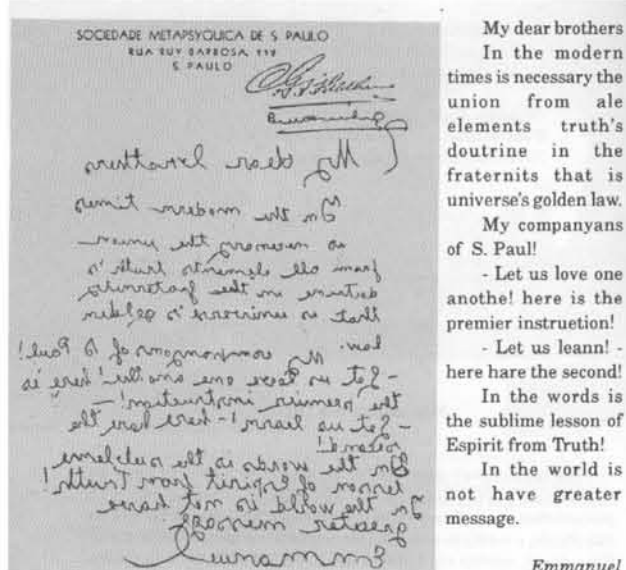 SOCIEDADE METAPSYQUICA DE S. PAULO
RUA RUY BARBOSA
S. PAULO
My dear brothers
In the modern times
is necessary the union
from all elements truth's
doctrine in the fraternits
that is universe's golden
law.
My companyons of S. Paul!
- Let us love one another! here is
the premier instruction! -
- Let us learn! - here hare the
second!
In the words is the sublime
lesson of Espirit from Truth!
In the world is not have
greater message
Emmanuel
My dear brothers
In the modern
times is necessary the
union from ale
elements truth's
doutrine in the
fraternits that is
universe's golden law.
My companyans
of S. Paul!
- Let us love one
anothe! here is the
premier instruetion!
- Let us leann! -
here hare the second!
In the words is
the sublime lesson of
Espirit from Truth!
In the world is
not have greater
message.
Emmanuel